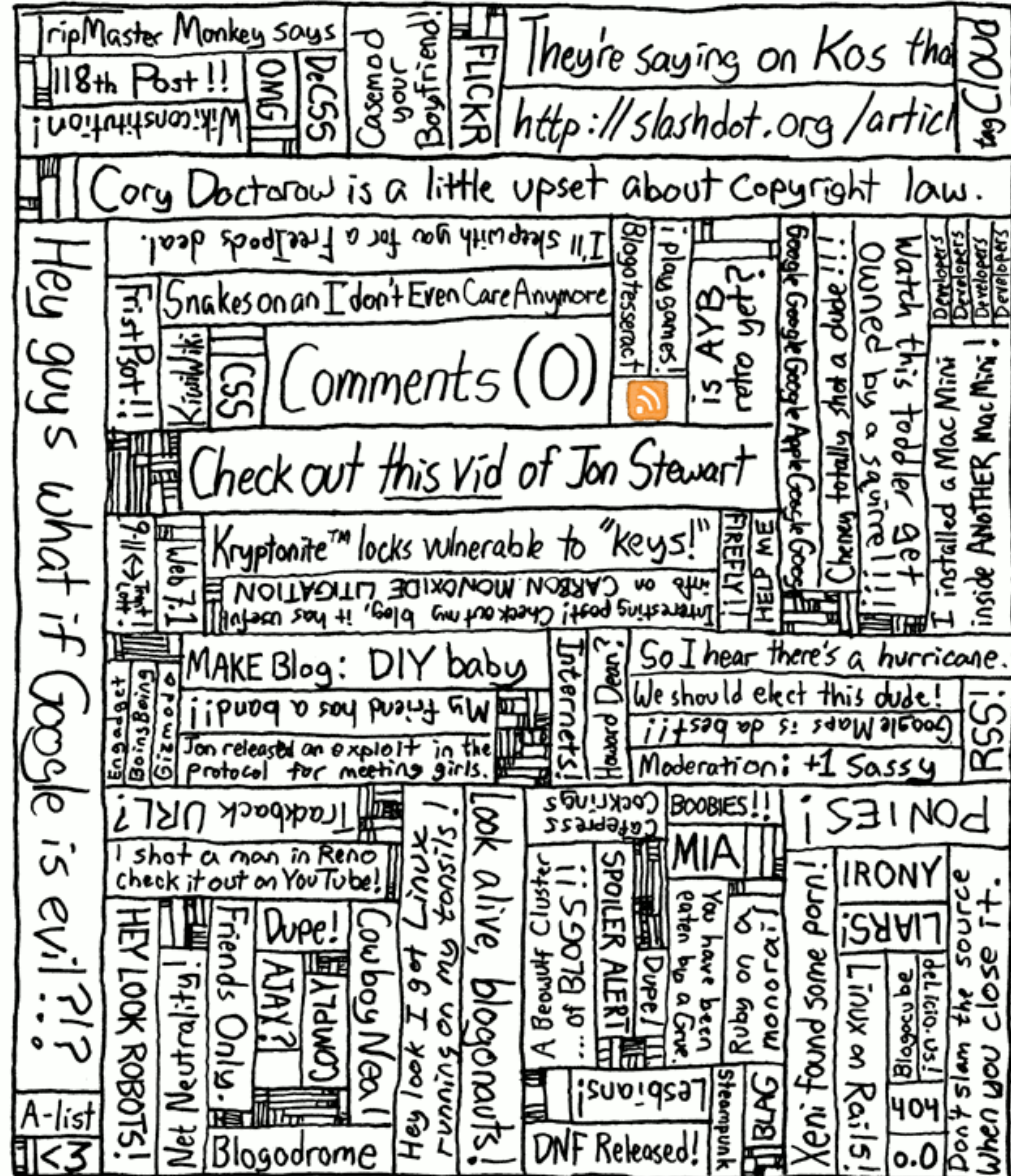 TripMaster Monkey says
118th Post!!
Wikiconstitution!
OMG
DeCSS
Casemod
your
Boyfriend!
FLICKR
They're saying on Kos tha
http://slashdot.org/articl
tag Cloud
Cory Doctorow is a little upset about copyright law.
Hey guys what if Google is evil?!?
I'll sleep with you for a FreeIpods deal.
FristPsot!!
Snakes on an I don't Even Care Anymore
KiwiWiki
CSS
Comments (0)
Blogotesseract
i play games!
is AYB
retro yet?
Google Google Google Apple Google Google
Cheney totally shot a dude!!!
Watch this toddler get
Owned by a squirrel!!!
Developers
Developers
Developers
Developers
I installed a Mac Mini
inside ANOTHER Mac Mini!
Check out this vid of Jon Stewart
9-11<->Trent
Lott!
Web 7.1
Kryptonite™ locks vulnerable to "keys!"
Interesting post! Check out my blog, it has useful
info on CARBON MONOXIDE LITIGATION
FIREFLY!!
HELP ME
Engadget
BoingBoing
Gizmodo
MAKE Blog: DIY baby
My friend has a band!!
Jon released an exploit in the
protocol for meeting girls.
Internets!
Howard Dean?
So I hear there's a hurricane.
We should elect this dude!
Google Maps is da best!!
Moderation: +1 Sassy
RSS!
Trackback URL?
I shot a man in Reno
check it out on YouTube!
HEY LOOK ROBOTS!
Net Neutrality!
Friends Only.
Dupe!
AJAX?
COWPLY
CowboyNeal
Blogodrome
Hey look I got Linux
running on my tonsils!
Look alive, blogonauts!
Cafepress
Cockrings
A Beowulf Cluster
... of BLOGS!!
SPOILER ALERT
Dupe!
BOOBIES!!
MIA
You have been
eaten by a Grue.
Ruby on a
monorail
Lesbians!
DNF Released!
Steampunk
BLAG
PONIES!
Xeni found some porn!
IRONY
LIARS!
Linux on Rails!
Blogocube
del.icio.us!
404
0.0
Don't slam the source
when you close it.
A-list
<3